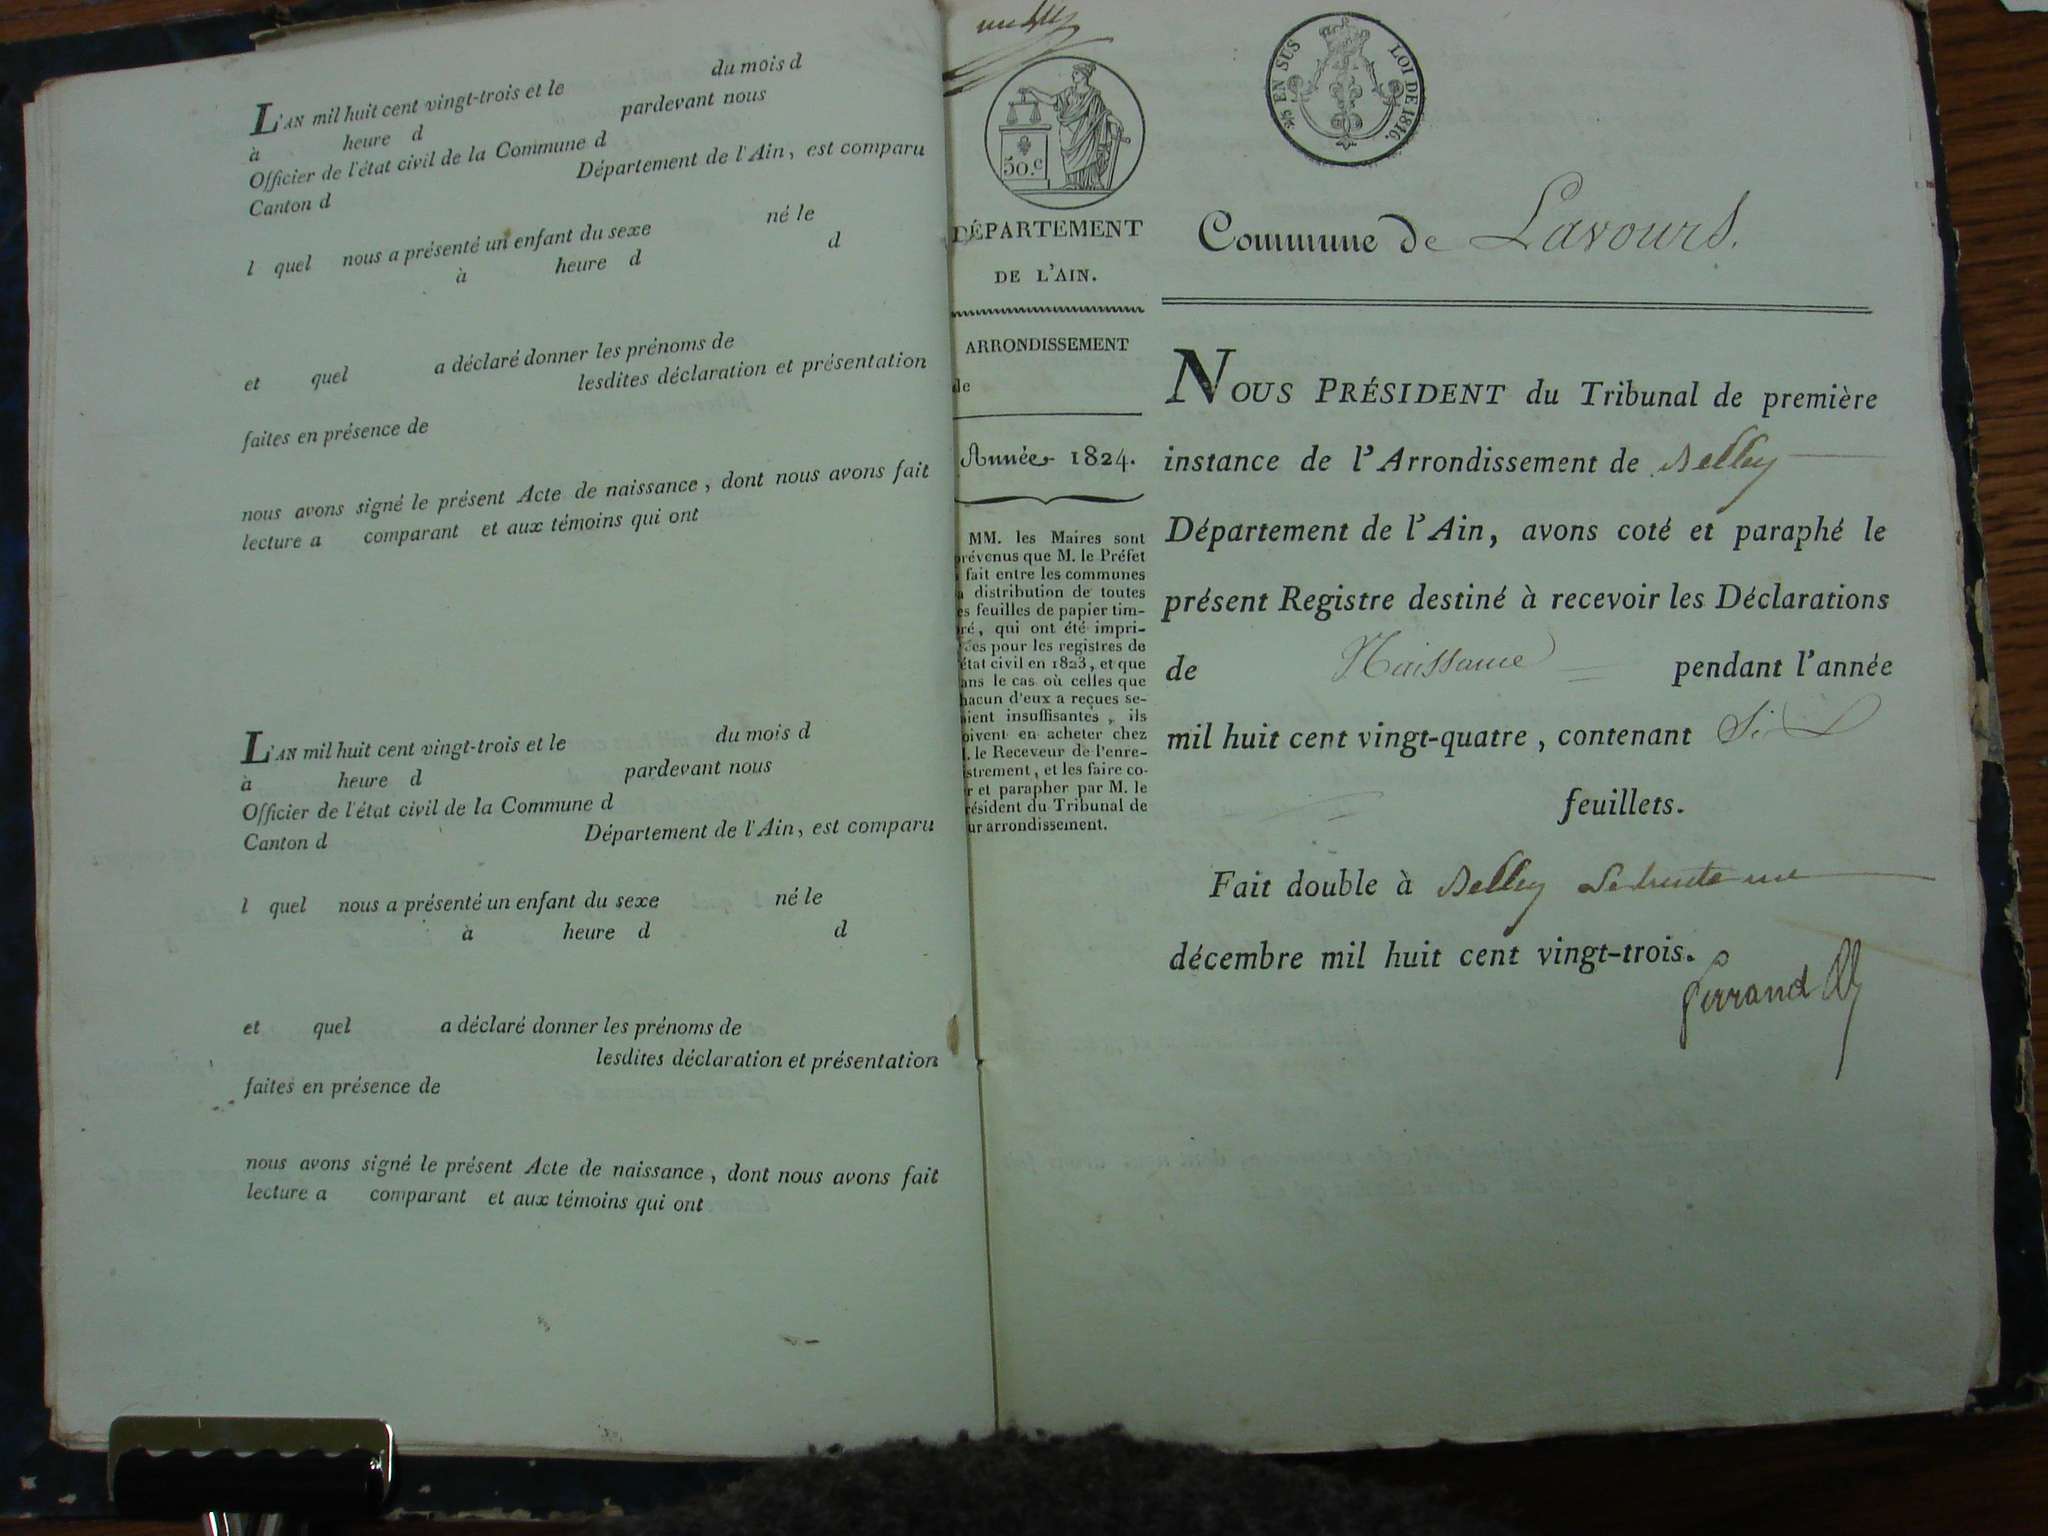 L'AN mil huit cent vingt-trois et le du mois d
à heure d pardevant nous
Officier de l'état civil de la Commune d
Canton d Département de l'Ain, est comparu
l quel nous a présenté un enfant du sexe né le
à heure d d
et quel a déclaré donner les prénoms de
lesdites déclaration et présentation
faites en présence de
nous avons signé le présent Acte de naissance, dont nous avons fait
lecture a comparant et aux témoins qui ont
L'AN mil huit cent vingt-trois et le du mois d
à heure d pardevant nous
Officier de l'état civil de la Commune d
Canton d Département de l'Ain, est comparu
l quel nous a présenté un enfant du sexe né le
à heure d d
et quel a déclaré donner les prénoms de
lesdites déclaration et présentation
faites en présence de
nous avons signé le présent Acte de naissance, dont nous avons fait
lecture a comparant et aux témoins qui ont
50.c
EN SUS LOI DE 1816.
DÉPARTEMENT
DE L'AIN.
ARRONDISSEMENT
de
Année 1824.
MM. les Maires sont
prévenus que M. le Préfet
fait entre les communes
distribution de toutes
es feuilles de papier tim-
ré, qui ont été impri-
ées pour les registres de
état civil en 1823, et que
ans le cas où celles que
hacun d'eux a reçues se-
oient insuffisantes, ils
oivent en acheter chez
. le Receveur de l'enre-
istrement, et les faire co-
r et parapher par M. le
résident du Tribunal de
ur arrondissement.
Commune de Lavours.
NOUS PRÉSIDENT du Tribunal de première
instance de l'Arrondissement de Belley
Département de l'Ain, avons coté et paraphé le
présent Registre destiné à recevoir les Déclarations
de Naissance pendant l'année
mil huit cent vingt-quatre, contenant Six
feuillets.
Fait double à Belley le trente un
décembre mil huit cent vingt-trois.